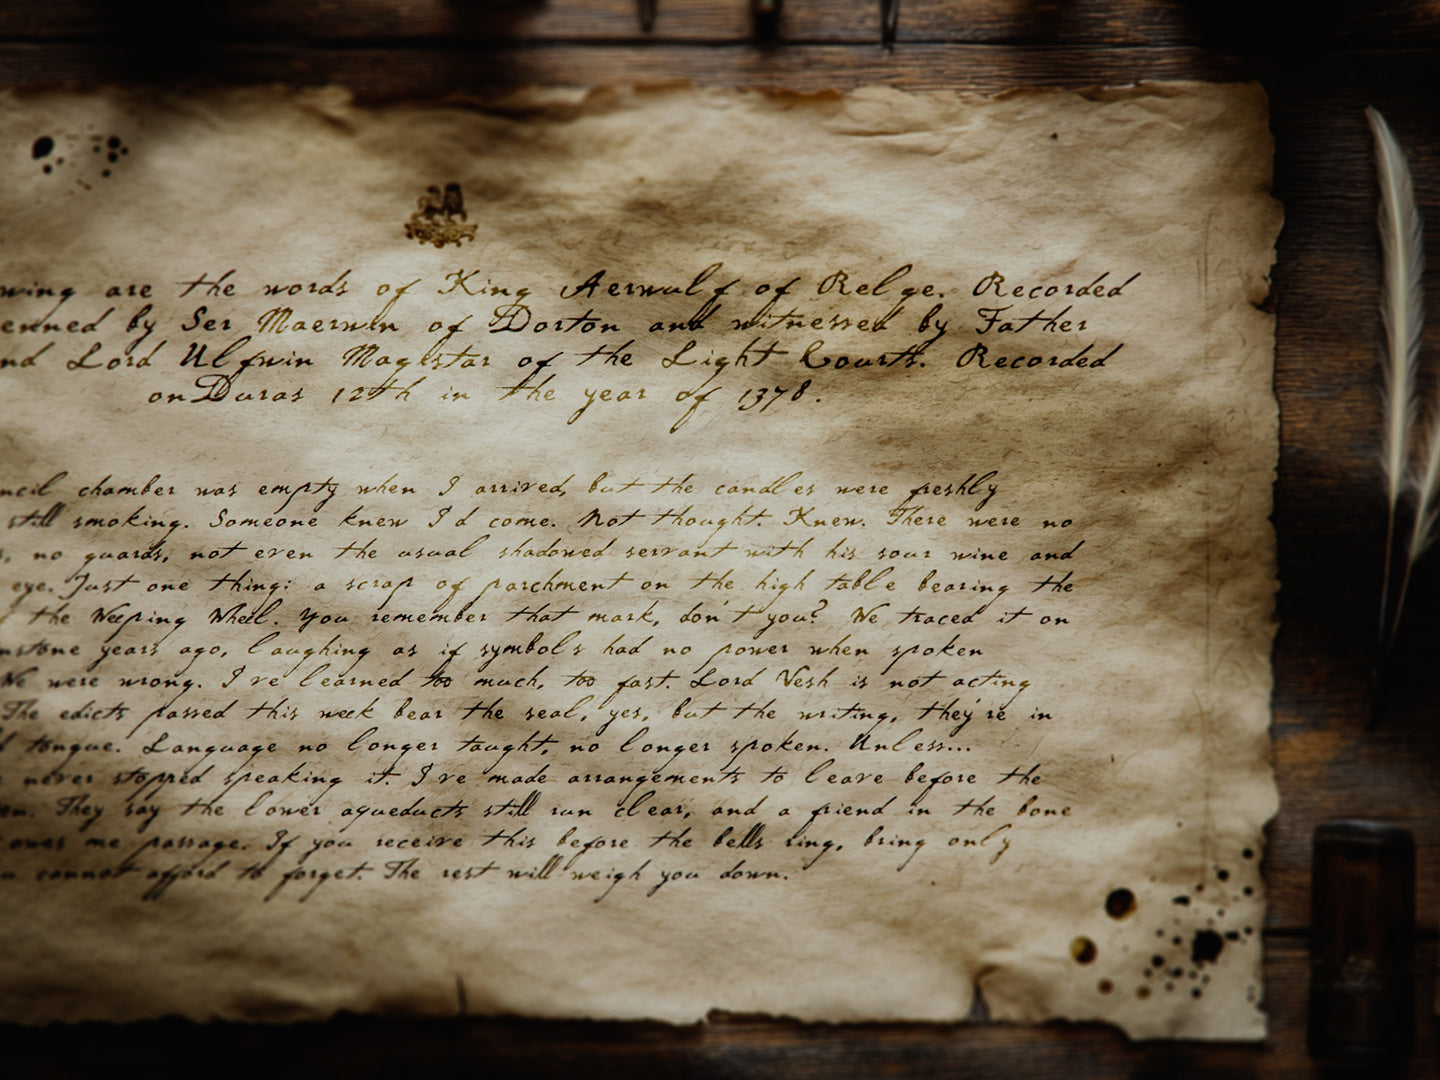 are the words of King Aerwulf of Relge. Recorded
by Ser Maerwin of Dorton and witnessed by Father
Lord Ulfwin Magistar of the Light Courts. Recorded
on Duras 12th in the year of 1378.
chamber was empty when I arrived, but the candles were freshly
still smoking. Someone knew I'd come. Not thought. Knew. There were no
no guards, not even the usual shadowed servant with his sour wine and
eye. Just one thing: a scrap of parchment on the high table bearing the
the Weeping Wheel. You remember that mark, don't you? We traced it on
years ago, laughing as if symbols had no power when spoken
We were wrong. I've learned too much, too fast. Lord Vesh is not acting
The edicts passed this week bear the seal, yes, but the writing, they're in
tongue. Language no longer taught, no longer spoken. Unless...
never stopped speaking it. I've made arrangements to leave before the
They say the lower aqueducts still run clear, and a friend in the bone
owes me passage. If you receive this before the bells ring, bring only
cannot afford to forget. The rest will weigh you down.